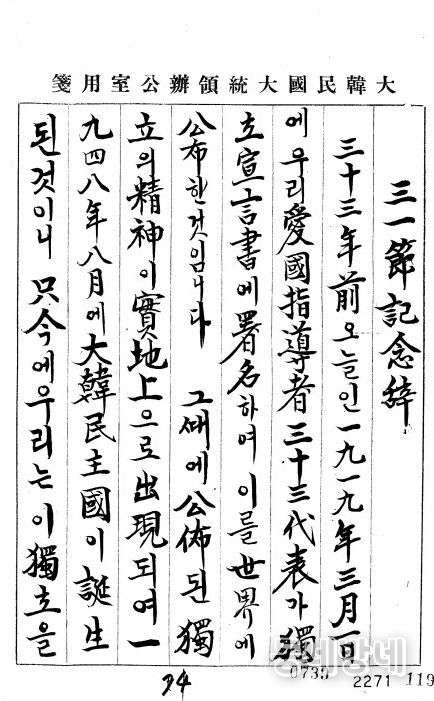 大韓民國大統領辦公室用箋
三一節記念辭
三十三年前오늘인一九一九年三月一日
에우리愛國指導者三十三代表가獨
立宣言書에署名하여이를世界에
公布한것입니다 그때에公佈된獨
立의精神이實地上으로出現되여一
九四八年八月에大韓民主國이誕生
된것이니 只今에우리는이獨立을
94
0733
2271
119